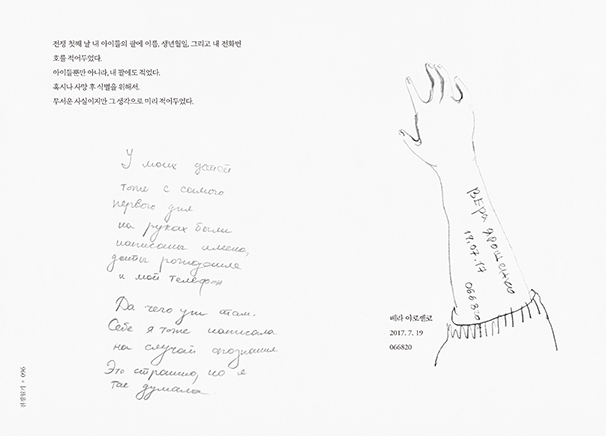 전쟁 첫째 날 내 아이들의 팔에 이름, 생년월일, 그리고 내 전화번
호를 적어두었다.
아이들뿐만 아니라, 내 팔에도 적었다.
혹시나 사망 후 식별을 위해서.
무서운 사실이지만 그 생각으로 미리 적어두었다.
У моих детей
тоже с самого
первого дня
на руках были
написаны имена,
даты рождения
и мой телефон
Да чего уж там.
Себе я тоже написала
на случай опознания
Это страшно, но я
так думала
Вера
19.07.17
066820
베라 야로셴코
2017. 7. 19
066820
전쟁일기 • 096